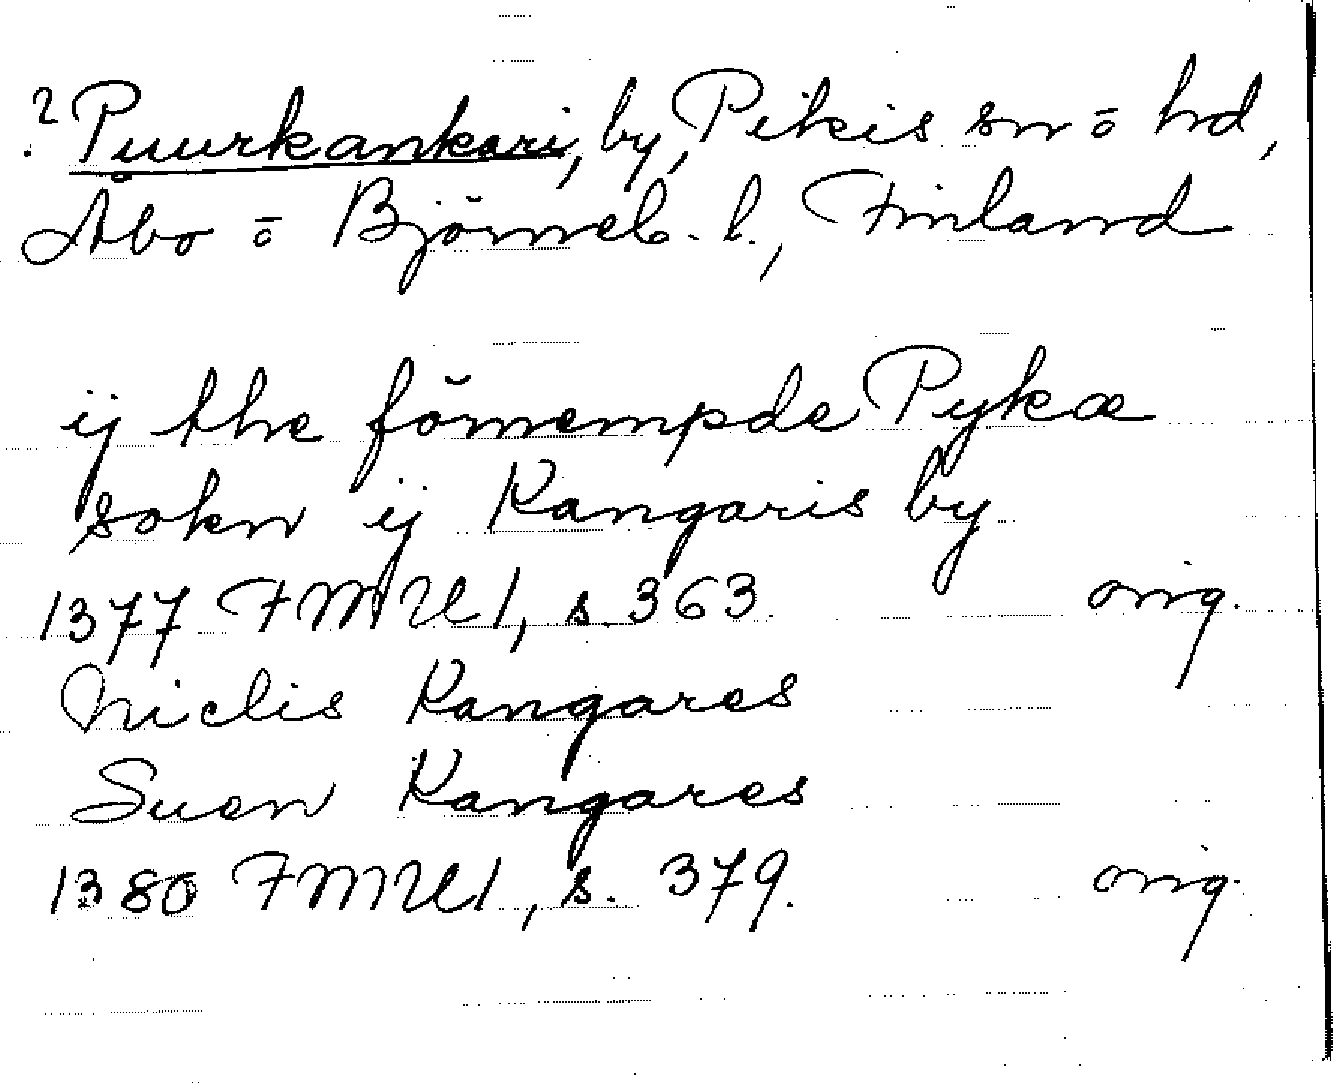 ? Puurkankari, by, Pikis sn ō hd,
Åbo ō Björneb. l., Finland
ij the förnempde Pykæ
sokn ij Kangaris by
1377 FMU 1, s. 363. orig.
Niclis Kangares
Suen Kangares
1380 FMU 1, s. 379. orig.